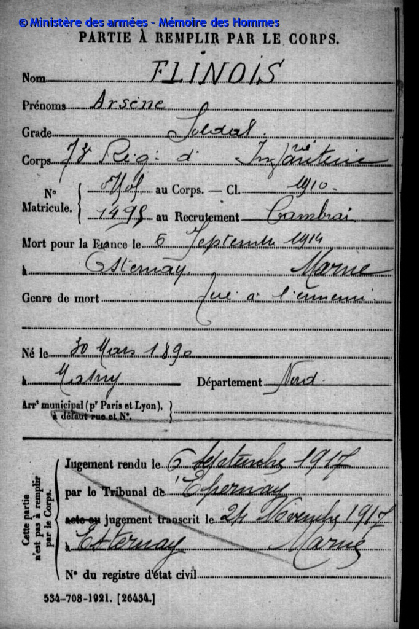 © Ministère des armées - Mémoire des Hommes
PARTIE À REMPLIR PAR LE CORPS.
Nom FLINOIS
Prénoms Arsène
Grade Soldat
Corps 78 Rég. d' Infanterie
N° Matricule. { au Corps. — Cl. 1910
1495 au Recrutement Cambrai
Mort pour la France le 6 Septembre 1914
à Esternay Marne
Genre de mort Tué à l'ennemi
Né le 30 Mars 1890
à Département Nord
Arrt municipal (pr Paris et Lyon), à défaut rue et N°. }
Cette partie n'est pas à remplir par le Corps. {
Jugement rendu le 6 Septembre 1917
par le Tribunal de Epernay
acte ou jugement transcrit le 24 Novembre 1917
à Esternay Marne
N° du registre d'état civil
534-708-1921. [26434.]